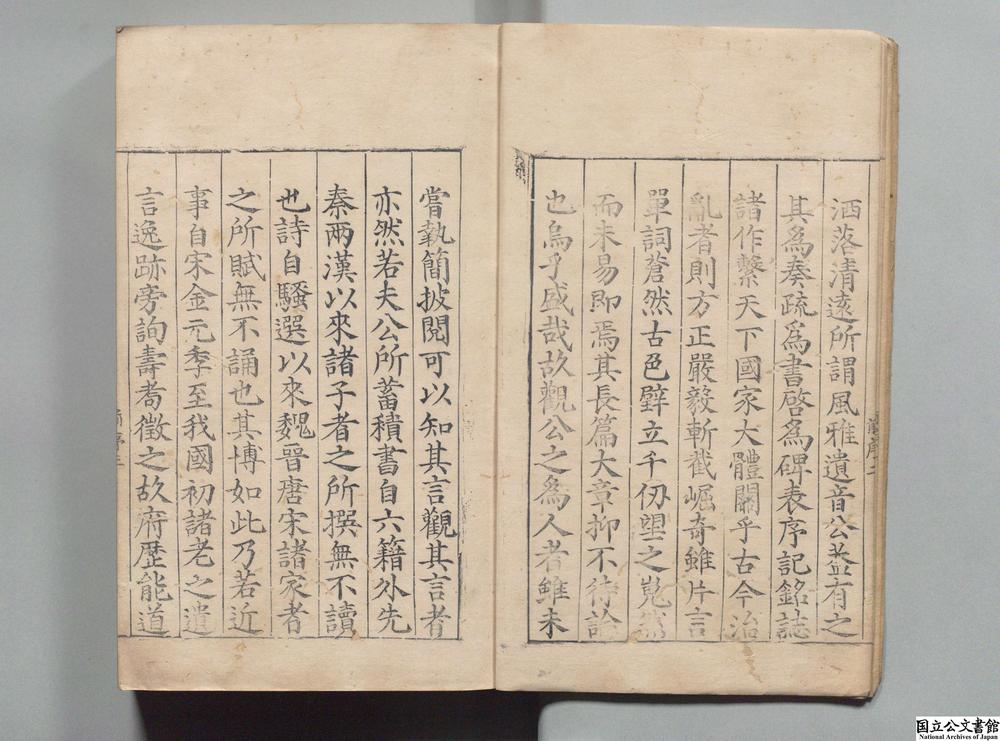 洒落清遠所謂風雅遺音公葢有之
其爲奏疏爲書啓爲碑表序記銘誌
諸作繫天下國家大體關乎古今治
亂者則方正嚴毅斬截崛奇雖片言
單詞蒼然古色壁立千仞望之嵬然
而未易即焉其長篇大章抑不待論
也烏乎盛哉故觀公之為人者雖未
嘗執簡披閱可以知其言觀其言者
亦然若夫公所蓄積書自六籍外先
秦兩漢以來諸子者之所撰無不讀
也詩自騷選以來魏晉唐宋諸家者
之所賦無不誦也其博如此乃若近
事自宋金元季至我國初諸老之遺
言逸跡旁詢壽耇徵之故府歷能道
国立公文書館
National Archives of Japan